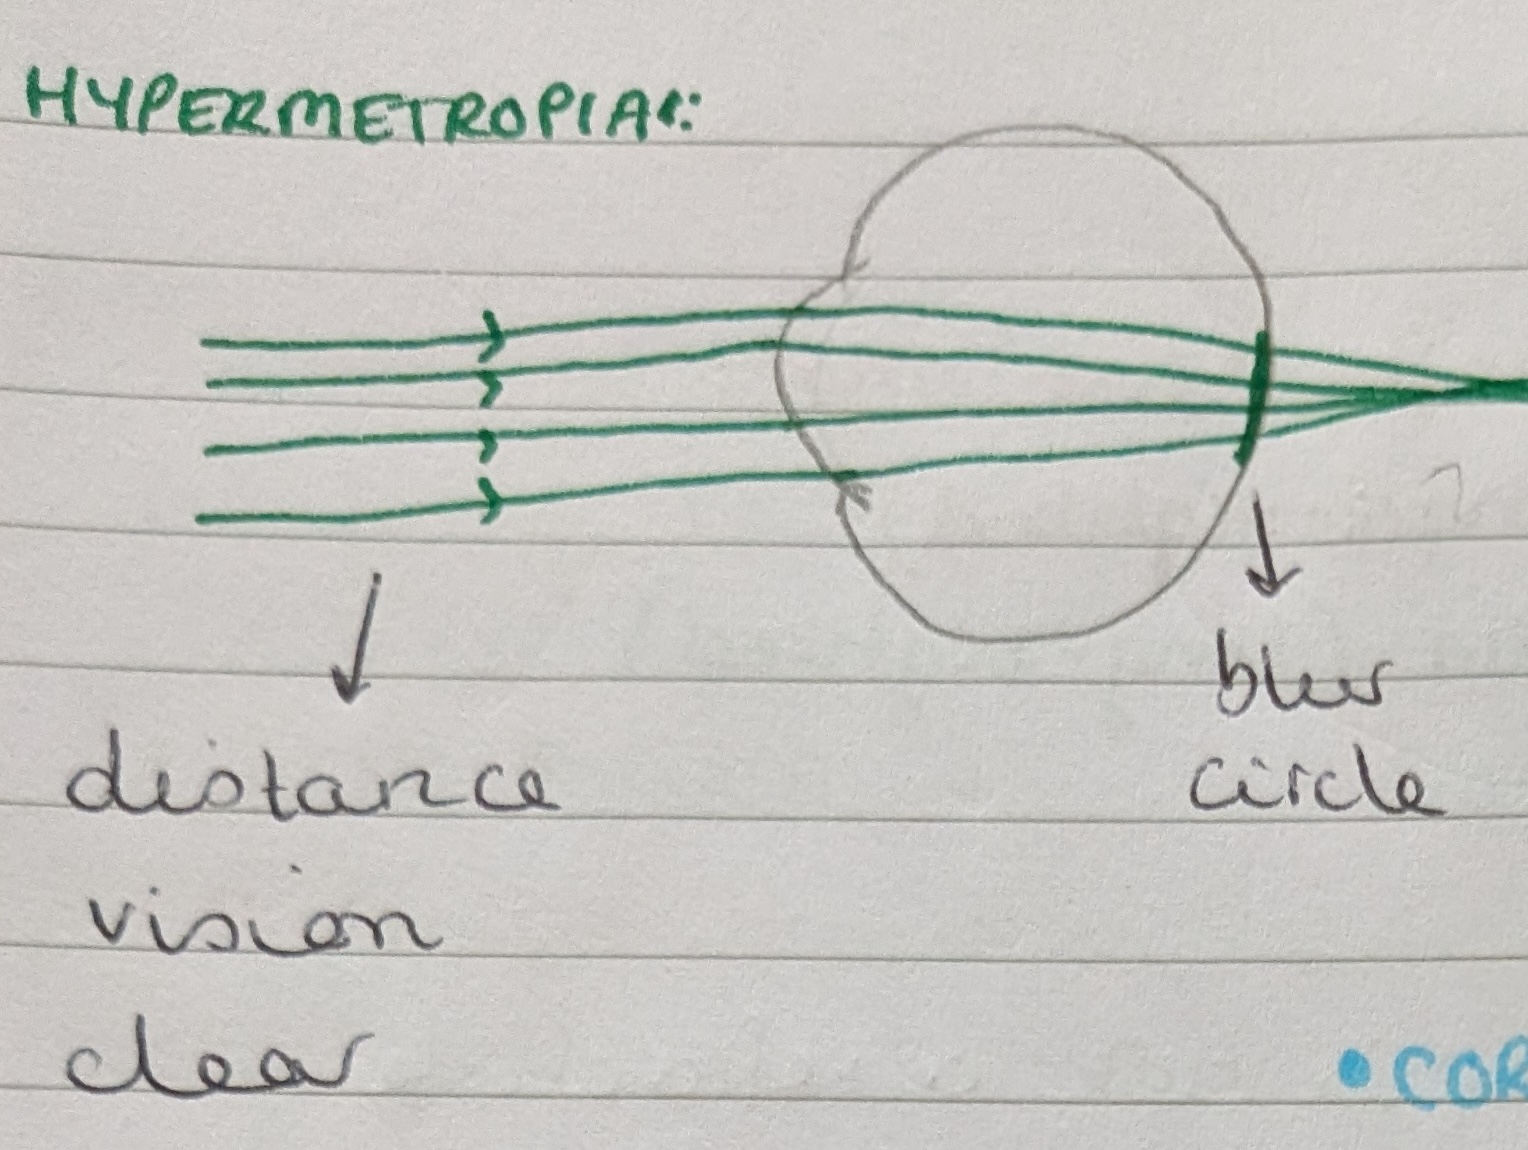 HYPERMETROPIA:
distance
vision
clear
blur
circle
• COR